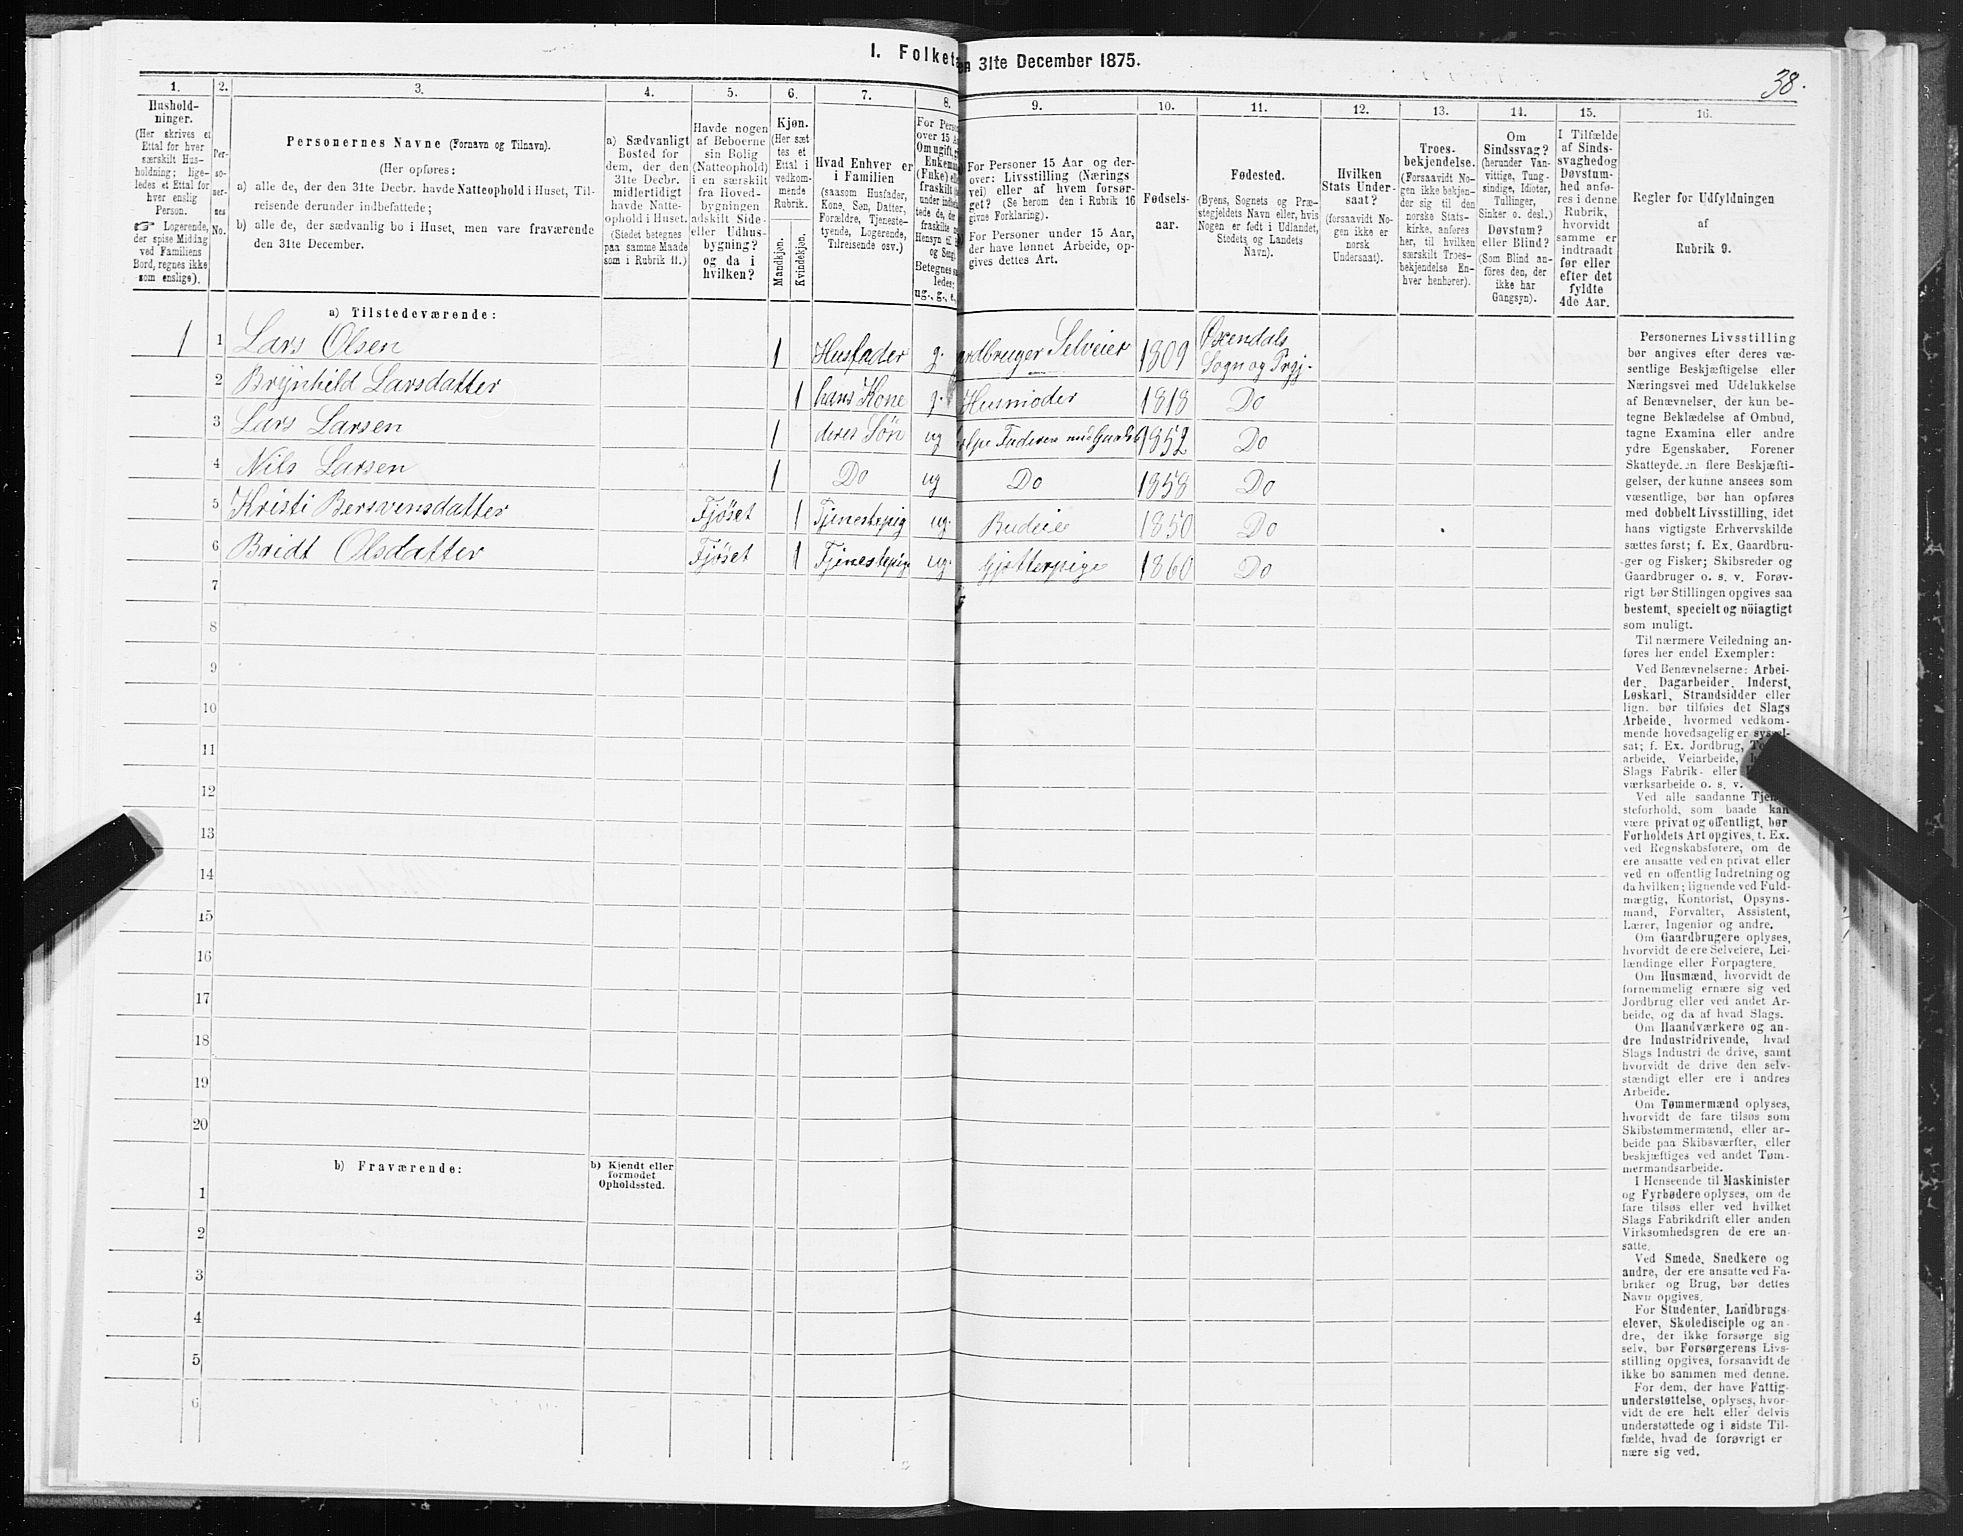 I. Folketæ
en 31te December 1875.
38.
1.
2.
3.
4.
5.
6.
7.
8.
9.
10.
11.
12.
13.
14.
15.
16.
Hushold-
ninger.
(Her skrives et
Ettal for hver
særskilt Hus-
holdning; lige-
ledes et Ettal for
hver enslig
Person.
☞ Logerende,
der spise Middag
ved Familiens
Bord, regnes ikke
som enslige).
Per-
so-
ner-
nes
No.
Personernes Navne (Fornavn og Tilnavn).
(Her opføres:
a) alle de, der den 31te Decbr. havde Natteophold i Huset, Til-
reisende derunder indbefattede;
b) alle de, der sædvanlig bo i Huset, men vare fraværende
den 31te December.
a) Sædvanligt
Bosted for
dem, der den
31te Decbr.
midlertidigt
havde Natte-
ophold i Huset.
(Stedet betegnes
paa samme Maade
som i Rubrik 11.)
Havde nogen
af Beboerne
sin Bolig
(Natteophold)
i en særskilt
fra Hoved-
bygningen
adskilt Side-
eller Udhus-
bygning?
og da i
hvilken?
Kjøn.
(Her sæt
tes et
Ettal i
vedkom-
mende
Rubrik.
Mandkjøn.
Kvindekjøn.
Hvad Enhver er
i Familien
(saasom Husfader,
Kone, Søn, Datter,
Forældre, Tjeneste-
tyende, Logerende,
Tilreisende osv.)
For Perso
over 15 Aar
Om ugift, g
Enkemand
(Fuke) ell
fraskilt
Hensyn til
og Seng.
Betegnes
ledes:
ug., g., e.,
For Personer 15 Aar og der-
over: Livsstilling (Nærings
vei) eller af hvem forsør-
get? (Se herom den i Rubrik 16
givne Forklaring).
For Personer under 15 Aar,
der have lønnet Arbeide, op-
gives dettes Art.
Fødsels-
aar.
Fødested.
(Byens, Sognets og Præ-
stegjeldets Navn eller, hvis
Nogen er født i Udlandet,
Stedets og Landets
Navn).
Hvilken
Stats Under-
saat?
(forsaavidt No-
gen ikke er
norsk
Undersaat).
Troes-
bekjendelse.
(Forsaavidt No-
gen ikke bekjen-
der sig til den
norske Stats-
kirke, anføres
her, til hvilken
særskilt Troes-
bekjendelse En-
hver henhører).
Om
Sindssvag?
(herunder Van-
vittige, Tung-
sindige, Idioter,
Tullinger,
Sinker o. desl.)
Døvstum?
eller Blind?
(Som Blind an-
føres den, der
ikke har
Gangsyn).
I Tilfælde
af Sinds-
svaghedog
Døvstum-
hed anfø-
res i denne
Rubrik,
hvorvidt
samme er
indtraadt
før eller
efter det
fyldte
4de Aar.
Regler for Udfyldningen
af
Rubrik 9.
a) Tilstedeværende:
1 1 Lars Olsen 1 Husfader g. ardbruger Selveier 1809 Øxendals Sogn og Prgj.
2 Brynhild Larsdatter 1 hans Kone g. Husmoder 1818 Do
3 Lars Larsen 1 deres Søn ug Faderen 1852 Do
4 Nils Larsen 1 Do ug Do 1858 Do
5 Kristi Bersvensdatter Fjøset 1 Tjenestepig ug. Budeie 1850 Do
6 Bridt Olsdatter Fjøset 1 Tjenestepige ug. Gjetterpige 1860 Do
7
8
9
10
11
12
13
14
15
16
17
18
19
20
b) Fraværende:
b) Kjendt eller
formodet
Opholdssted.
1
2
3
4
5
6
Personernes Livsstilling
bør angives efter deres væ-
sentlige Beskjæftigelse eller
Næringsvei med Udelukkelse
af Benævnelser, der kun be-
tegne Beklædelse af Ombud,
tagne Examina eller andre
ydre Egenskaber. Forener
Skatteyderen flere Beskjæfti-
gelser, der kunne ansees som
væsentlige, bør han opføres
med dobbelt Livsstilling, idet
hans vigtigste Erhvervskilde
sættes først; f. Ex. Gaardbru-
ger og Fisker; Skibsreder og
Gaardbruger o. s. v. Forøv-
rigt bør Stillingen opgives saa
bestemt, specielt og nöiagtigt
som muligt.
Til nærmere Veiledning an-
føres her endel Exempler:
Ved Benævnelserne: Arbei-
der, Dagarbeider, Inderst,
Løskarl, Strandsidder eller
lign. bør tilføies det Slags
Arbeide, hvormed vedkom-
mende hovedsagelig er syssel-
sat; f. Ex. Jordbrug,
arbeide, Veiarbeide,
Slags Fabrik- eller
værksarbeide o. s. v.
Ved alle saadanne Tjene-
steforhold, som baade kan
være privat og offentligt, bør
Forholdets Art opgives, t. Ex.
ved Regnskabsførere, om de
ere ansatte ved en privat eller
ved en offentlig Indretning og
da hvilken; lignende ved Fuld-
mægtig, Kontorist, Opsyns-
mand, Forvalter, Assistent,
Lærer, Ingeniør og andre.
Om Gaardbrugere oplyses,
hvorvidt de ere Selveiere, Lei-
lændinge eller Forpagtere.
Om Husmænd, hvorvidt de
fornemmelig ernære sig ved
Jordbrug eller ved andet Ar-
beide, og da af hvad Slags.
Om Haandværkere og an-
dre Industridrivende, hvad
Slags Industri de drive, samt
hvorvidt de drive den selv-
stændigt eller ere i andres
Arbeide.
Om Tømmermænd oplyses,
hvorvidt de fare tilsøs som
Skibstømmermænd, eller ar-
beide paa Skibsværfter, eller
beskjæftiges ved andet Tøm-
mermandsarbeide.
I Henseende til Maskinister
og Fyrbødere oplyses, om de
fare tilsøs eller ved hvilket
Slags Fabrikdrift eller anden
Virksomhedsgren de ere an-
satte.
Ved Smede, Snedkere og
andre, der ere ansatte ved Fa-
briker og Brug, bør dettes
Navn opgives.
For Studenter, Landbrugs-
elever, Skoledisciple og an-
dre, der ikke forsørge sig
selv, bør Forsørgerens Livs-
stilling opgives, forsaavidt de
ikke bo sammen med denne.
For dem, der have Fattig-
understøttelse, oplyses, hvor-
vidt de ere helt eller delvis
understøttede og i sidste Til-
fælde, hvad de forøvrigt er-
nære sig ved.